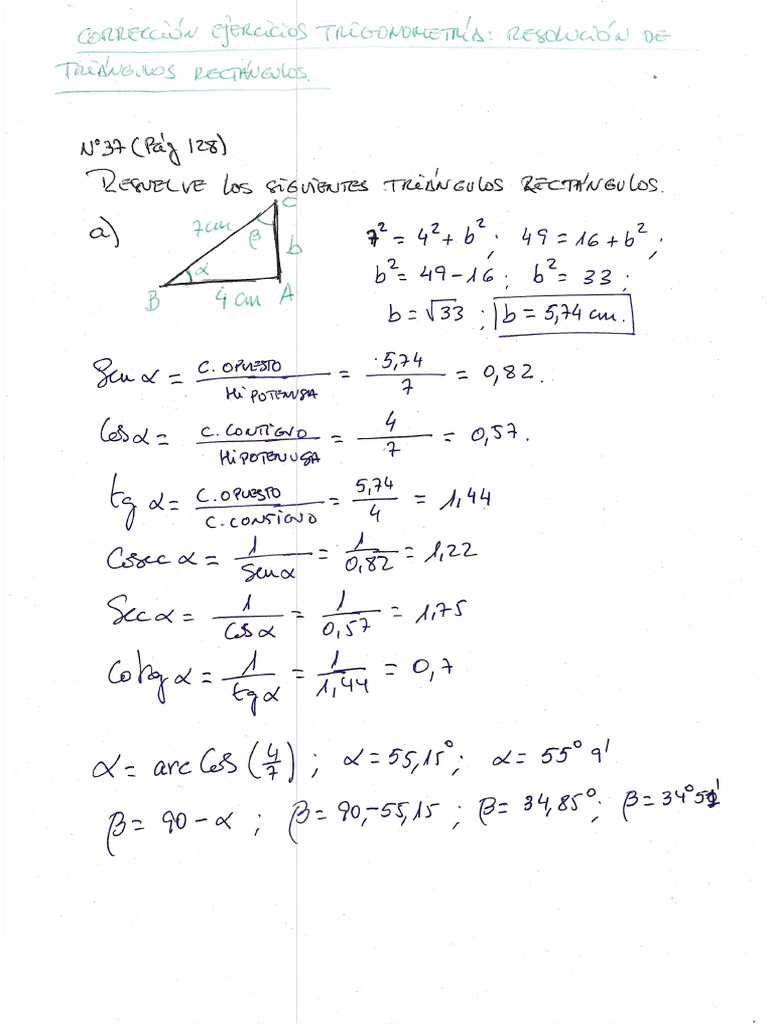 CORRECCIÓN EJERCICIOS TRIGONOMETRÍA: RESOLUCIÓN DE
TRIÁNGULOS RECTÁNGULOS.
Nº37 (Pág 128)
RESUELVE LOS SIGUIENTES TRIÁNGULOS RECTÁNGULOS.
a)
C
7cm
β
b
α
B
4 cm
A
7² = 4² + b² ; 49 = 16 + b² ;
b² = 49 - 16 ; b² = 33 ;
b = √33 ; b = 5,74 cm.
Sen α = C. OPUESTO / HIPOTENUSA = 5,74 / 7 = 0,82.
Cos α = C. CONTIGUO / HIPOTENUSA = 4 / 7 = 0,57.
tg α = C. OPUESTO / C. CONTIGUO = 5,74 / 4 = 1,44
Cosec α = 1 / Sen α = 1 / 0,82 = 1,22
Sec α = 1 / Cos α = 1 / 0,57 = 1,75
Cotg α = 1 / tg α = 1 / 1,44 = 0,7
α = arc Cos (4/7) ; α = 55,15° ; α = 55° 9'
β = 90 - α ; β = 90 - 55,15 ; β = 34,85° ; β = 34° 51'